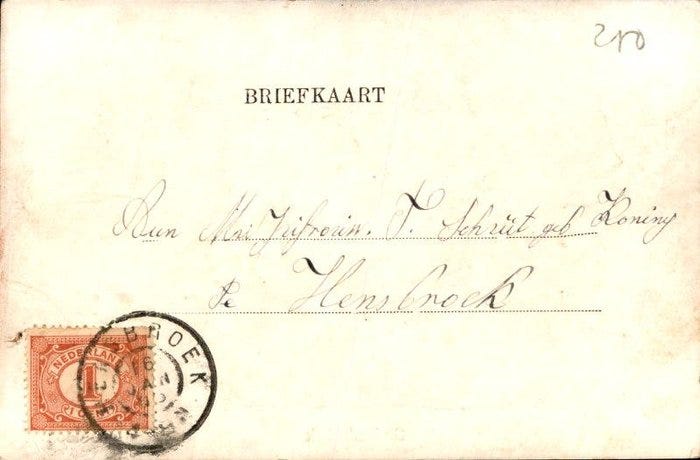 250
BRIEFKAART
Aan Mej Jufvrouw. T. Schuit geb Koning
te Hensbroek
NEDERLAND
1
BROEK